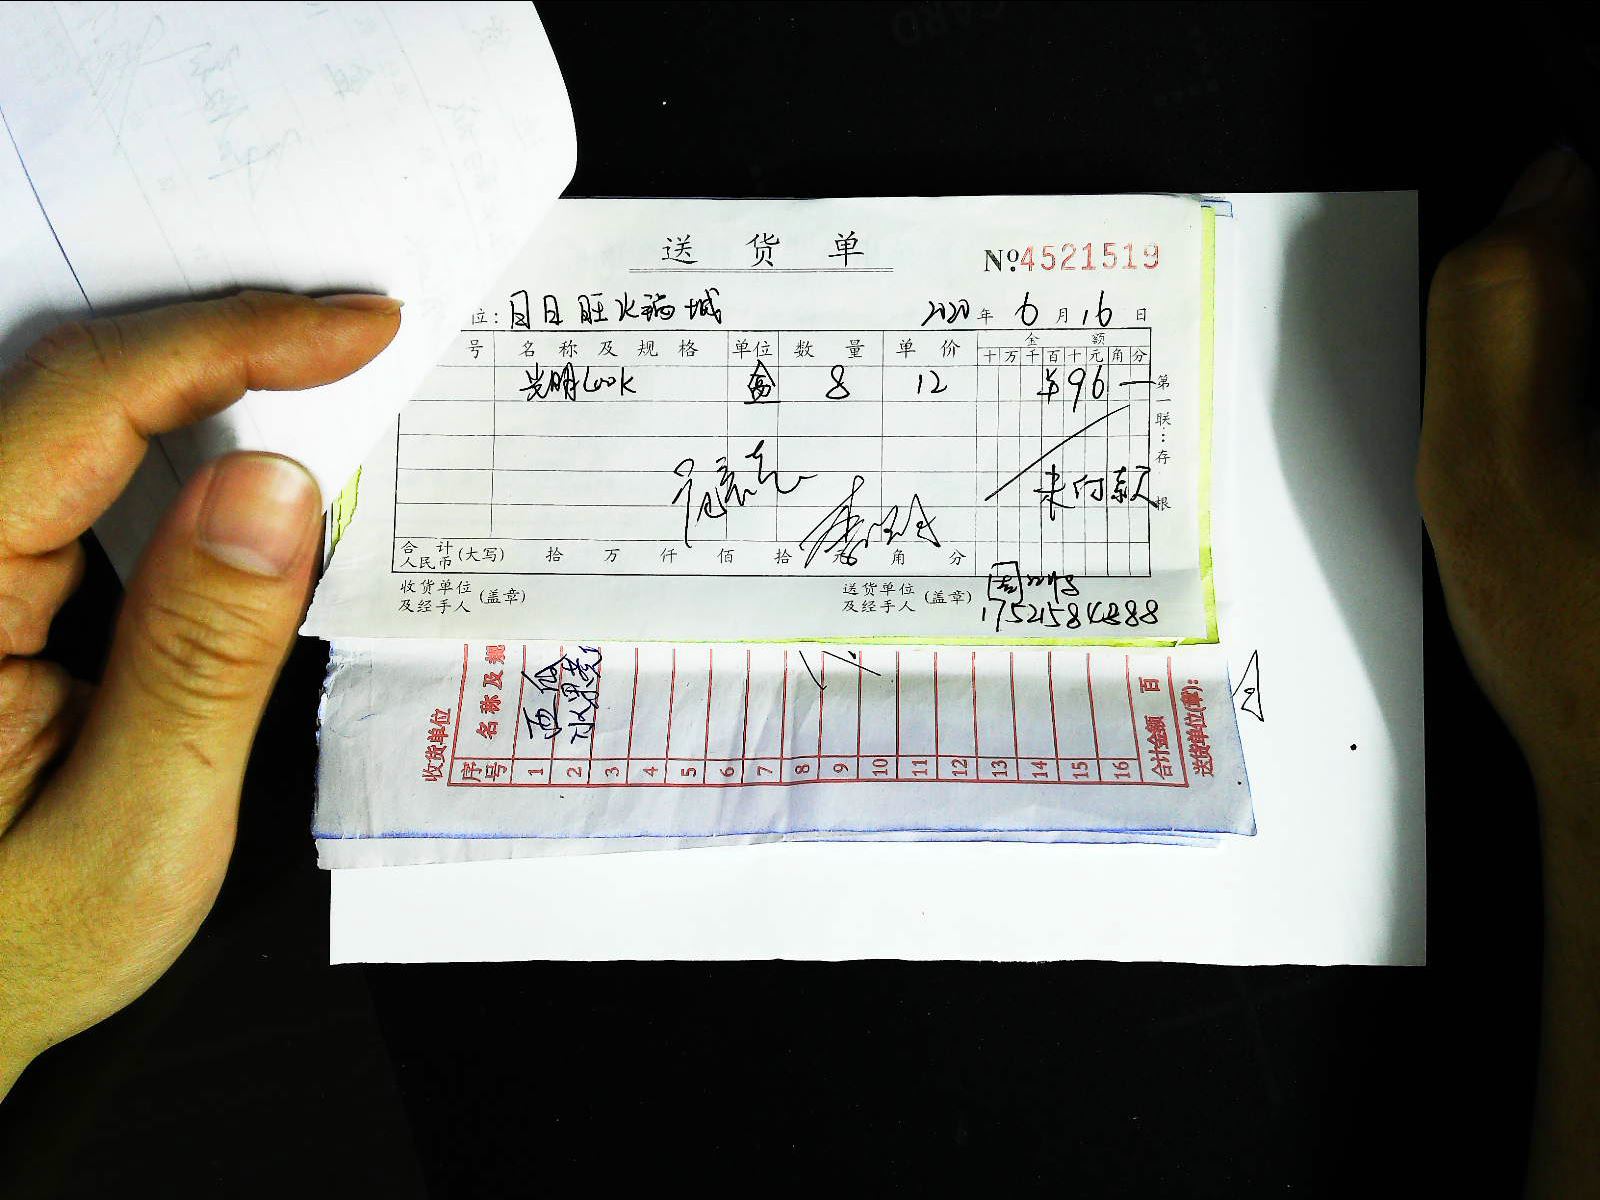 送货单
№4521519
位: 日日旺火锅城 2020年6月16日
号 名称及规格 单位 数量 单价 金额
十万千百十元角分
光明Look 盒 8 12 ¥96—
第一联:存根
未付款
合计
人民币(大写) 拾 万 仟 佰 拾 元 角 分
收货单位
及经手人(盖章)
送货单位
及经手人(盖章)
17521584888
收货单位
序号 名称及规
1 西
2 水果
3
4
5
6
7
8
9
10
11
12
13
14
15
16
合计金额 百
送货单位(章):